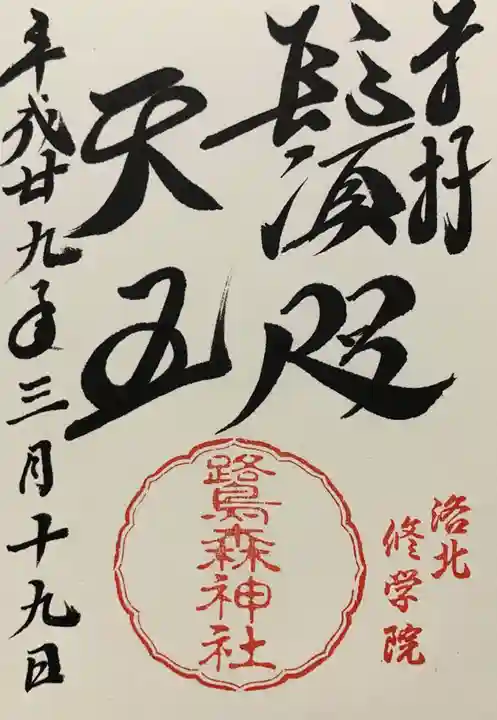 奉拝
鬚咫
天王
平成廿九年三月十九日
鷺森神社
洛北
修学院